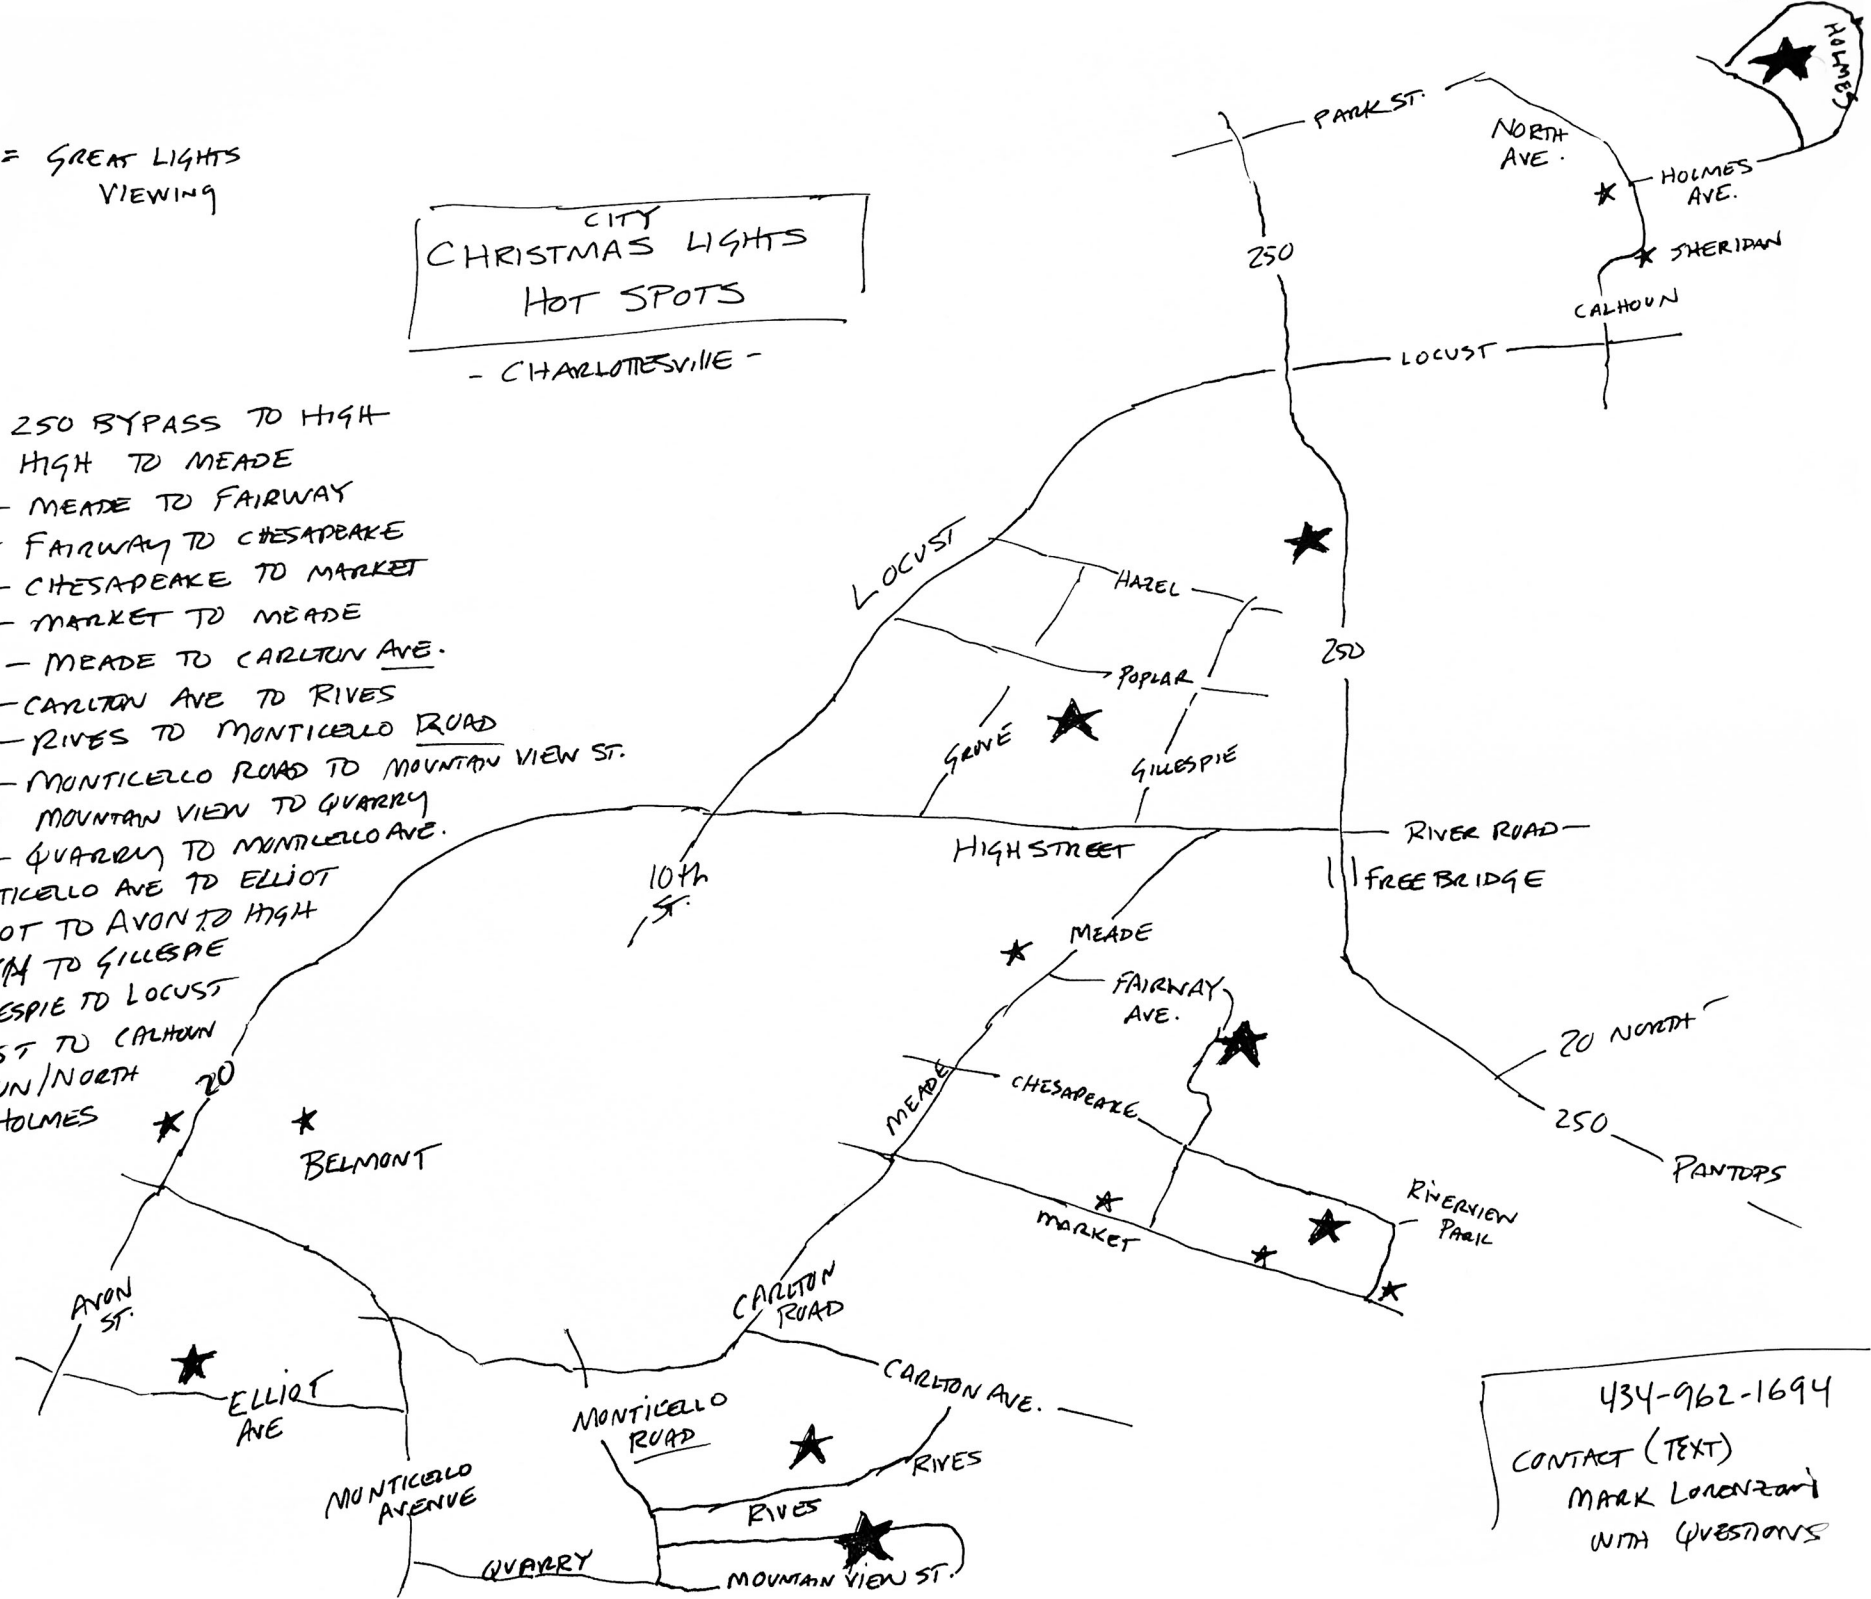 = GREAT LIGHTS
VIEWING
CITY
CHRISTMAS LIGHTS
HOT SPOTS
- CHARLOTTESVILLE -
250 BYPASS TO HIGH
HIGH TO MEADE
- MEADE TO FAIRWAY
FAIRWAY TO CHESAPEAKE
- CHESAPEAKE TO MARKET
- MARKET TO MEADE
- MEADE TO CARLTON AVE.
- CARLTON AVE TO RIVES
- RIVES TO MONTICELLO ROAD
- MONTICELLO ROAD TO MOUNTAIN VIEW ST.
MOUNTAIN VIEW TO QUARRY
- QUARRY TO MONTICELLO AVE.
TICELLO AVE TO ELLIOT
OT TO AVON TO HIGH
H TO GILLESPIE
ESPIE TO LOCUST
ST TO CALHOUN
UN/NORTH
HOLMES
HOLMES
PARK ST.
NORTH
AVE.
HOLMES
AVE.
SHERIDAN
CALHOUN
250
LOCUST
LOCUST
HAZEL
250
POPLAR
GROVE
GILLESPIE
HIGH STREET
RIVER ROAD
FREE BRIDGE
10th
ST.
MEADE
FAIRWAY
AVE.
20 NORTH
20
MEADE
CHESAPEAKE
250
PANTOPS
BELMONT
RIVERVIEW
PARK
MARKET
AVON
ST.
CARLTON
ROAD
ELLIOT
AVE
CARLTON AVE.
MONTICELLO
ROAD
RIVES
RIVES
MONTICELLO
AVENUE
QUARRY
MOUNTAIN VIEW ST.
434-962-1694
CONTACT (TEXT)
MARK LORENZONI
WITH QUESTIONS